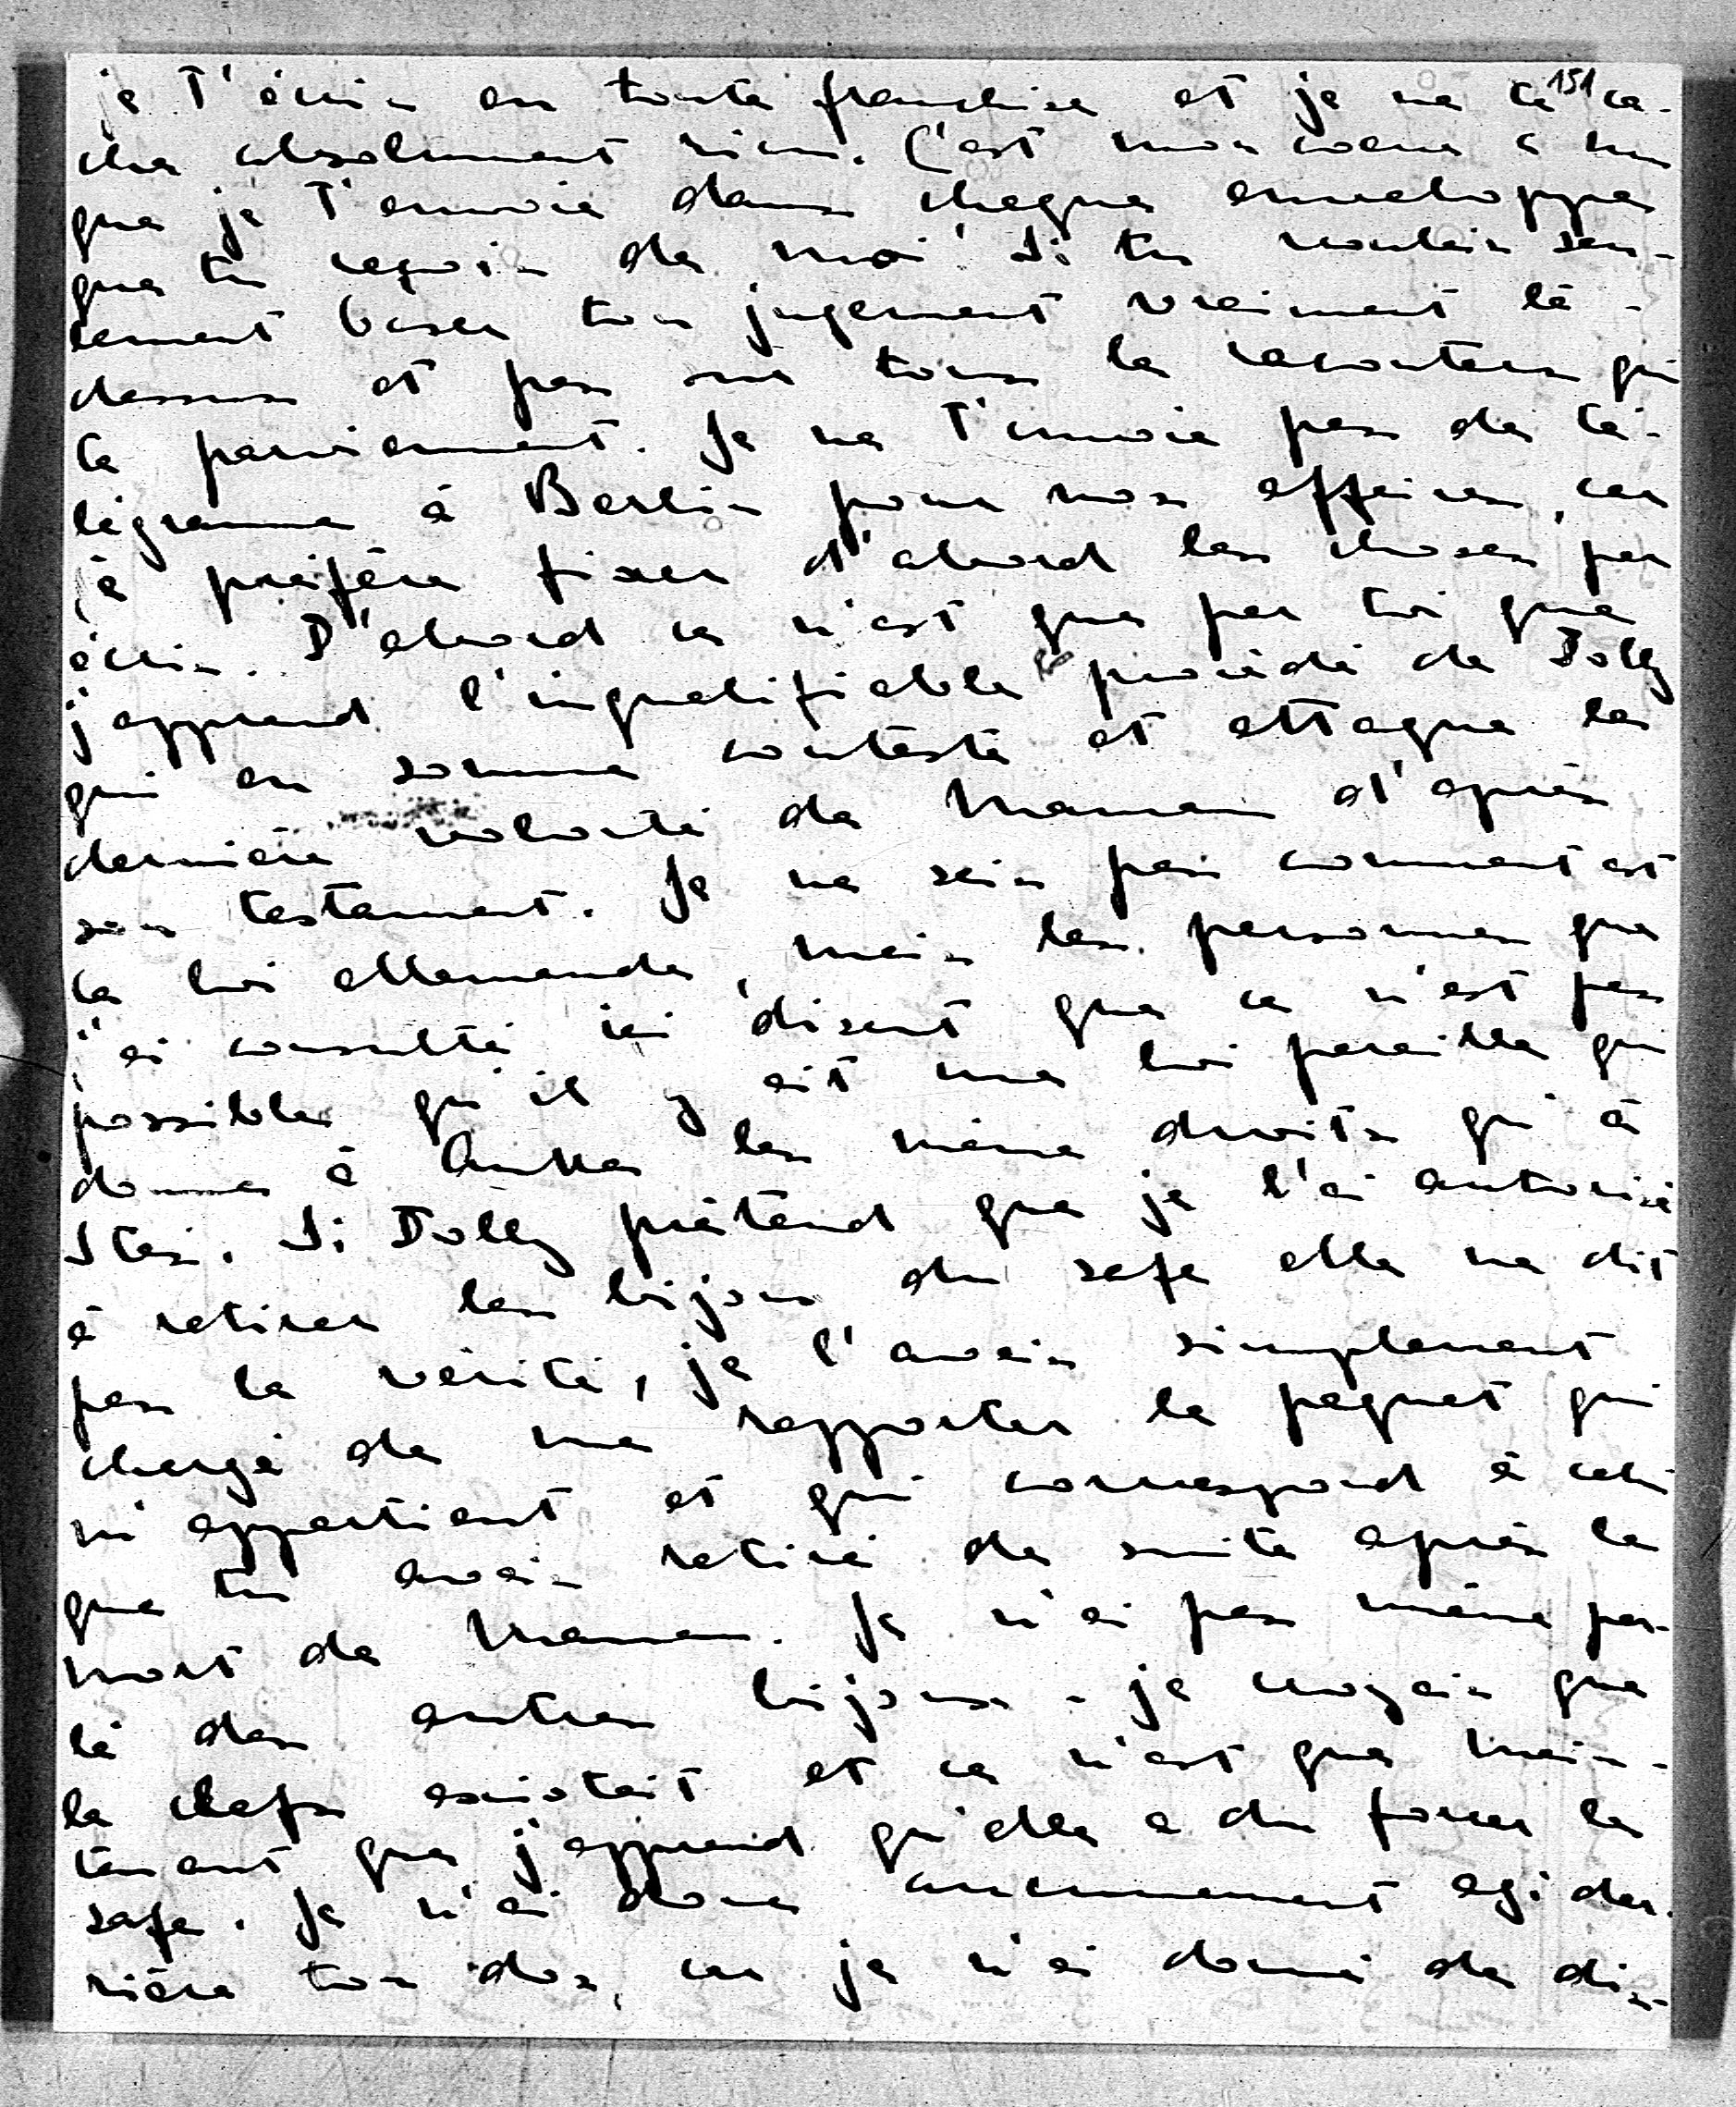 151
je t'écris en toute franchise et je ne te ca-
che absolument rien. C'est mon coeur à nu
que je t'envoie dans chaque enveloppe
que tu reçois de moi! Si tu voulais seu-
lement baser ton jugement vraiment là-
dessus et pas sur tous les racontars qui
te parviennent. Je ne t'envoie pas de té-
légramme à Berlin pour nos affaires, car
je préfère fixer d'abord les choses par
écris. D'abord ce n'est que par toi que
j'apprend l'inqualifiable procédé de Dolly
qui en somme conteste et attaque la
dernière volonté de Maman d'après
son testament. Je ne sais pas comment est
la loi allemande, mais les personnes que
j'ai consulté ici disent que ce n'est pas
possible qu'il y ait une loi pareille qui
donne à les même droits qu'à
Stez. Si Dolly prétend que je l'ai autorisé
à retirer les bijoux du safe elle ne dit
pas la vérité, je l'avais simplement
chargé de me rapporter le paquet qui
m'appartient et qui correspond à celui
que tu avais retiré de suite après la
mort de Maman. Je n'ai pas même par-
lé des autres bijoux - je croyais que
la clefs existait et ce n'est que main-
tenant que j'apprend qu'elle a du forcer le
safe. Je n'ai donc aucunement agi der-
rière ton dos, car je n'ai donné de dis-